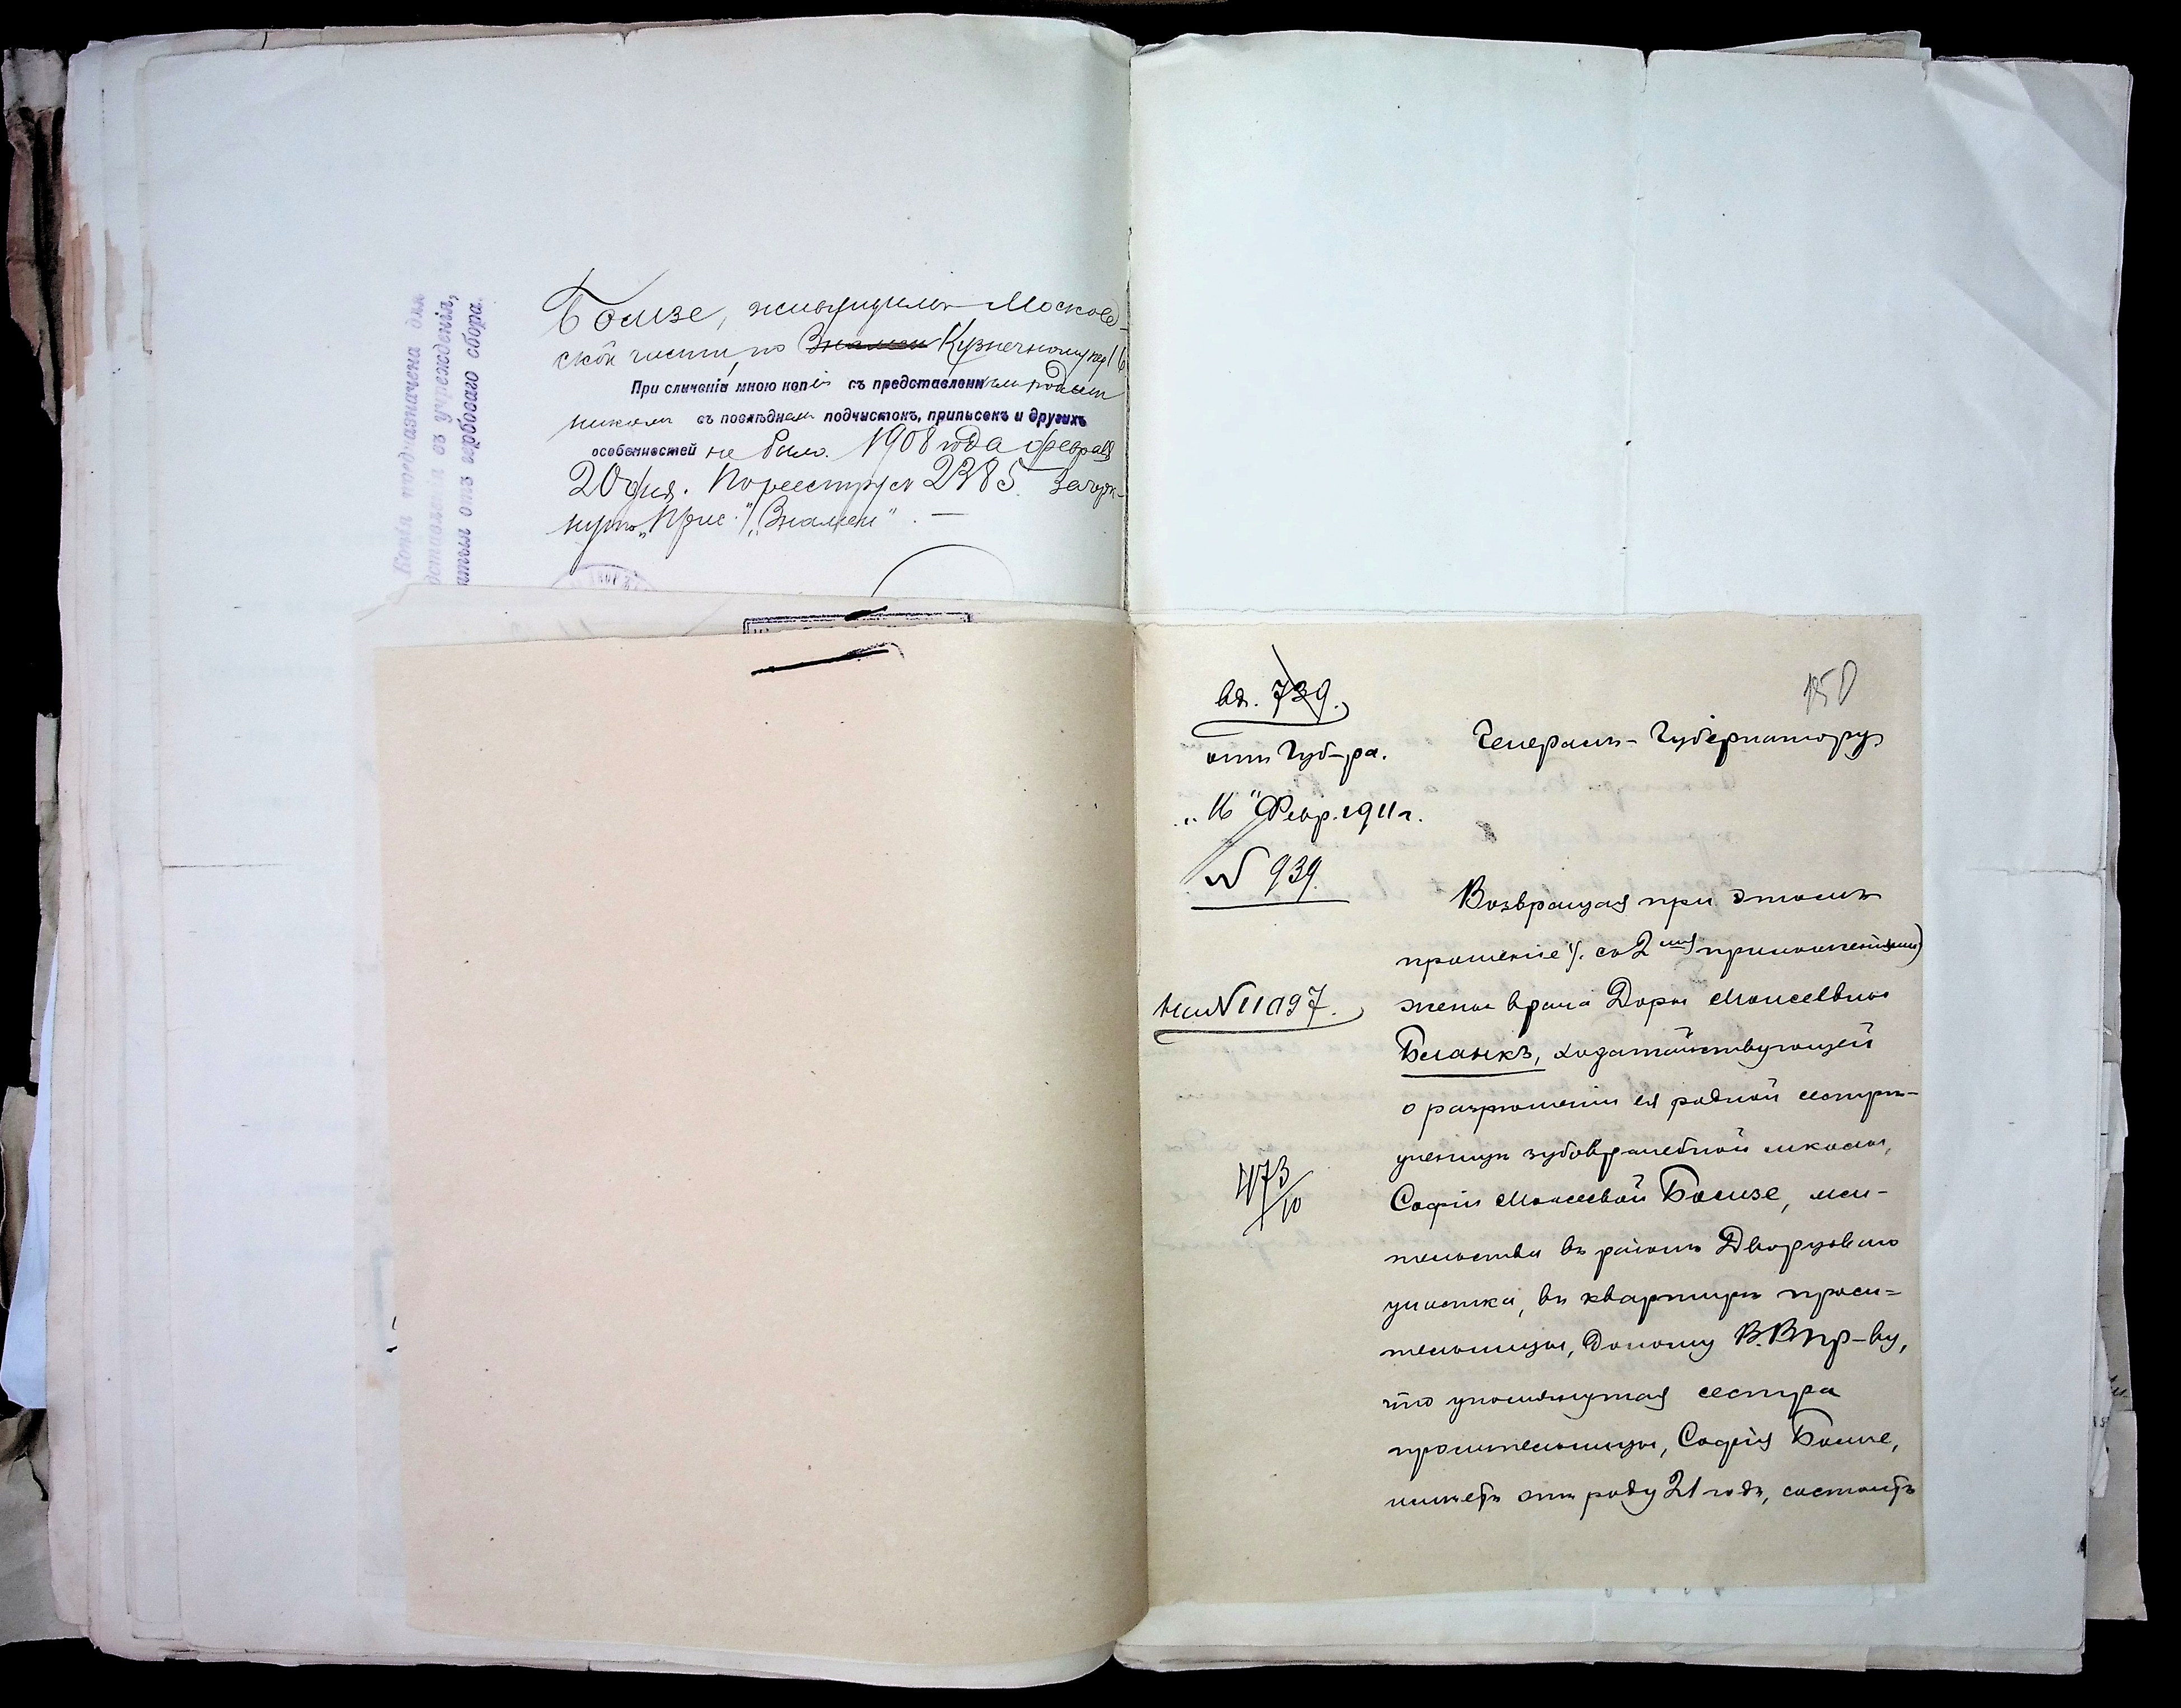 Болизе, жительницею Москов-
ской части, по Знамен Кузнечному пер 16
При сличеніи мною копіи съ представленнымъ подлин
никомъ въ послѣднемъ подчистокъ, приписокъ и другихъ
особенностей не было. 1908 года февраля
20 дня. По реестру № 2385. Зачерк-
нуто „Знамен". —
Копія предназначена для
въ учрежденія,
отъ гербоваго сбора.
вх. 739.
отъ Губ-ра.
„16" Февр. 1911 г.
№ 939.
На № 11097.
473/10
150
Генералъ-Губернатору
Возвращая при этомъ
прошеніе /. съ 2 мя приложеніями)
жены врача Доры Моисеевны
Бланкъ, ходатайствующей
о разрѣшеніи ея родной сестрѣ-
ученицѣ зубоврачебной школы,
Софіи Моисеевой Болизе, жи-
тельства въ районѣ Дворцоваго
участка, въ квартирѣ проси=
тельницы, доношу В.В Пр-ву,
что упомянутая сестра
просительницы, Софія Болизе,
имѣетъ отъ роду 21 годъ, состоитъ